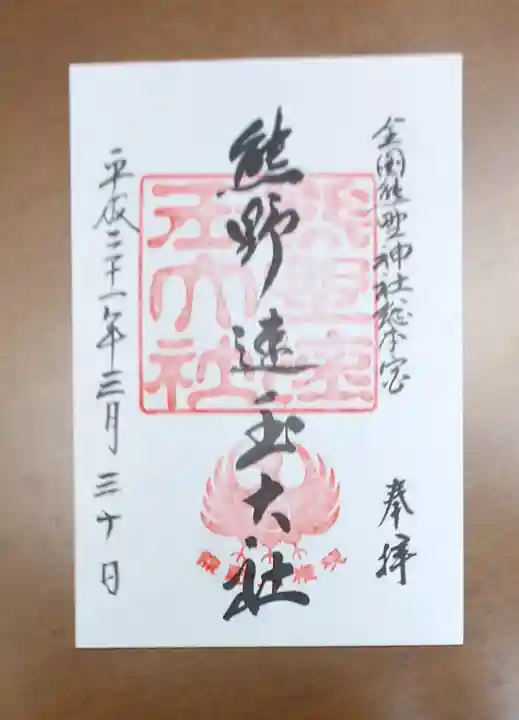 全国熊野神社総本宮
奉拝
熊野速玉大社
熊野速玉大社
平成二十一年三月三十日